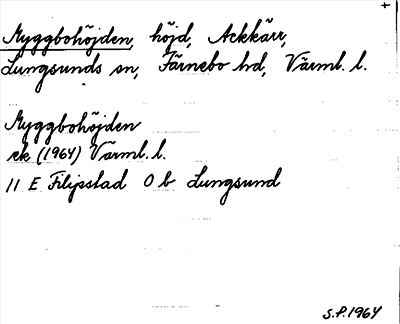 +
Myggbohöjden, höjd, Ackkärr,
Lungsunds sn, Färnebo hd, Värml. l.
Myggbohöjden
ek (1964) Värml. l.
11 E Filipstad 0 b Lungsund
S.P. 1964